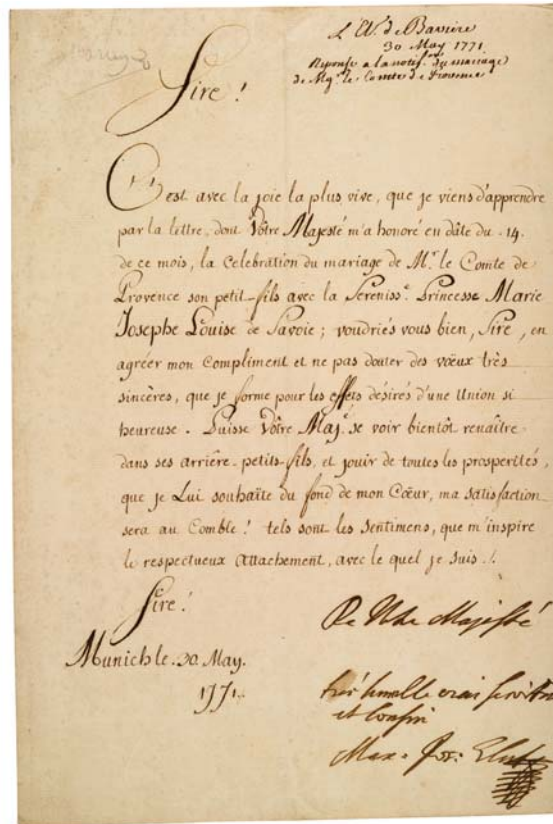 L'El. de Baviere
30 May 1771
Reponse a la notif.on du mariage
de Mgr. le Comte de Provence
Sire!
C'est avec la joie la plus vive, que je viens d'apprendre
par la lettre, dont Vôtre Majesté m'a honoré en dâte du 14.
de ce mois, la Celebration du mariage de Mr. le Comte de
Provence son petit-fils avec la Sereniss.e Princesse Marie
Josephe Louise de Savoie; voudriés vous bien, Sire, en
agréer mon Compliment et ne pas douter des vœux très
sincères, que je forme pour les effets désirés d'une Union si
heureuse. Puisse Vôtre Maj.é se voir bientôt renaître
dans ses arrière-petits-fils, et jouir de toutes les prosperités,
que je Lui souhaite du fond de mon Cœur, ma satisfaction
sera au Comble! tels sont les Sentimens, que m'inspire
le respectueux Attachement, avec le quel je suis ./.
Sire!
De Votre Majesté
Munich le 30. May.
1771.
et Cousin
Max. Jos.